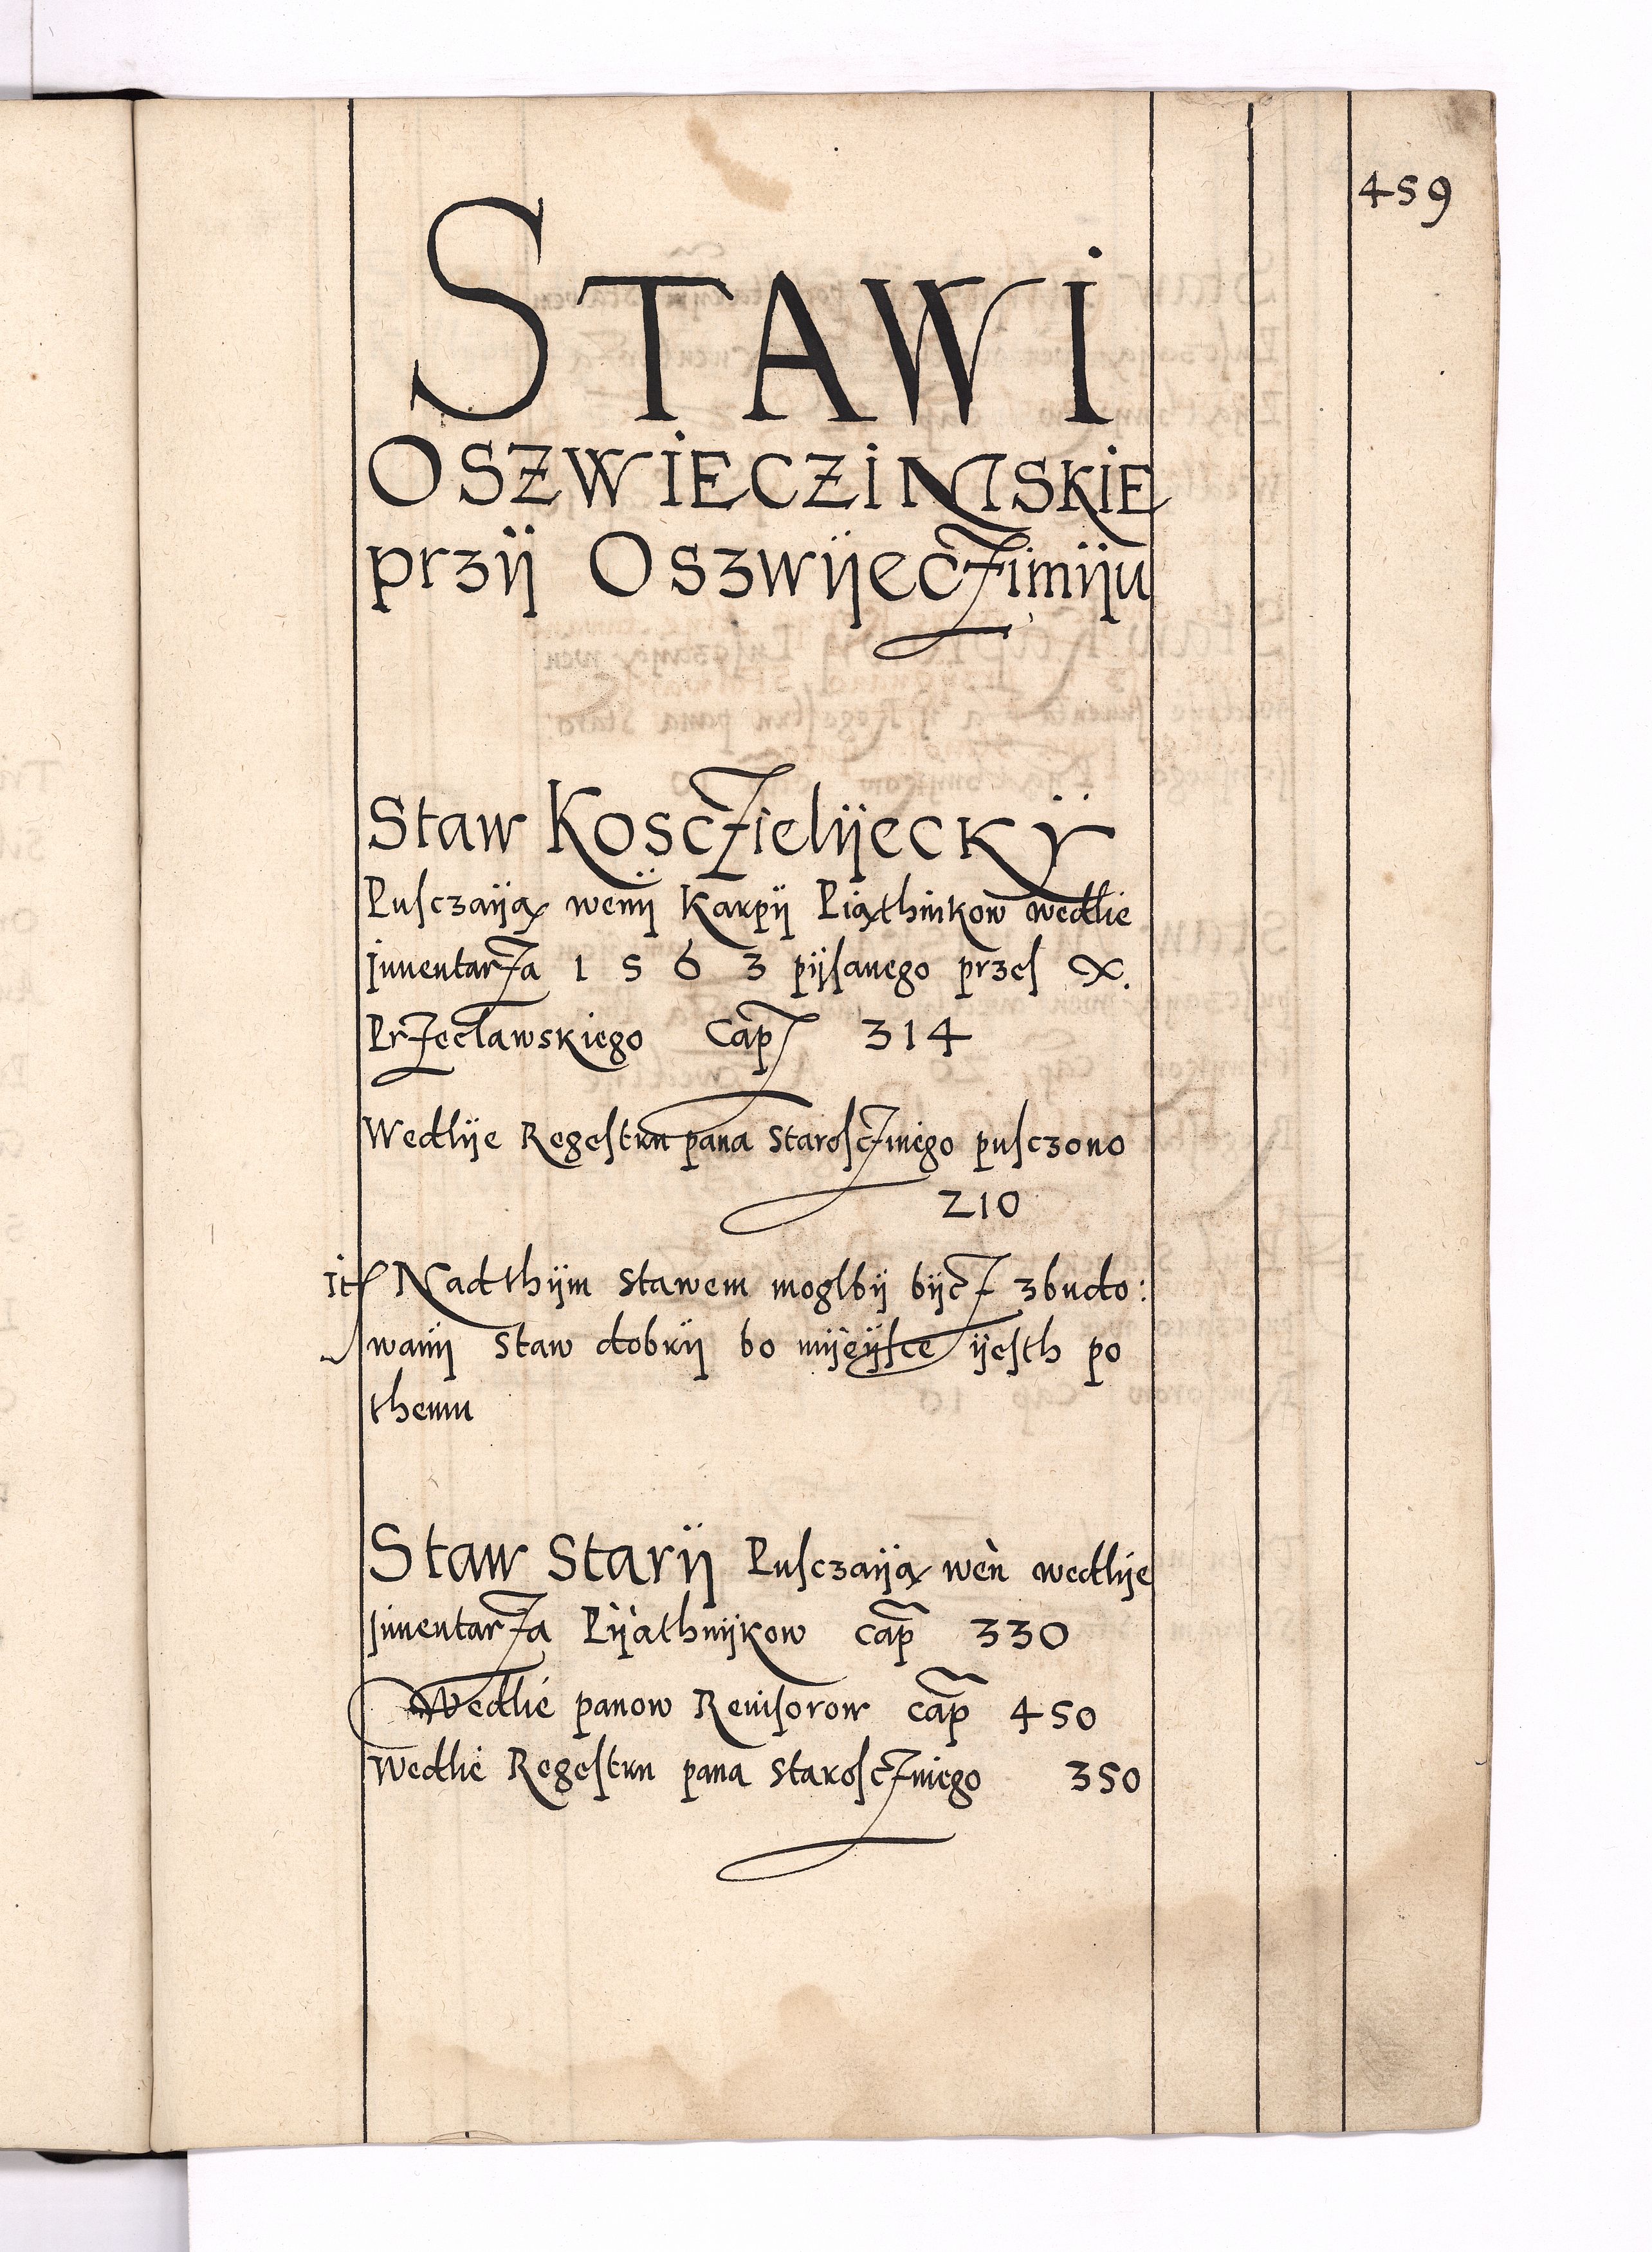 459
STAWI
OSZWIECZINSKIE
przÿ Oszwÿeczimÿu
Staw Kosczielÿeckÿ
Pusczaÿą wenÿ Karpÿ Piąthnikow wedlie
Jnuentarza 1563 pÿsanego przes X.
Przeclawskiego Cap 314
Wedlÿe Regestru pana Starosczinego pusczono
210
it Nad thÿm Stawem moglbÿ bÿcz zbudo:
wanÿ Staw dobrÿ bo mÿeÿsce ÿesth po
themu
Staw Starÿ Pusczaÿą wèn wedlÿe
Jnuentarza Pÿathnÿkow cap̃ 330
Wedlie panow Reuisorow cap̃ 450
Wedlie Regestru pana Starosczniego 350